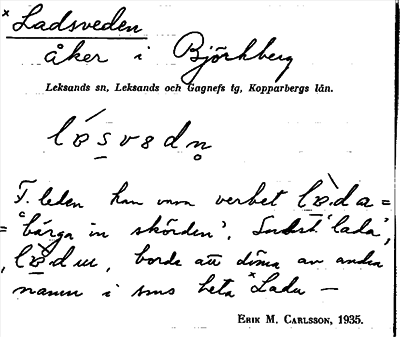 × Ladsveden
åker i Björkberg
Leksands sn, Leksands och Gagnefs tg, Kopparbergs län.
F. leden kan vara verbet
= 'bärga in skörden'. Subst. 'lada',
borde att döma av andra
namn i sms heta Ladu —
Erik M. Carlsson, 1935.